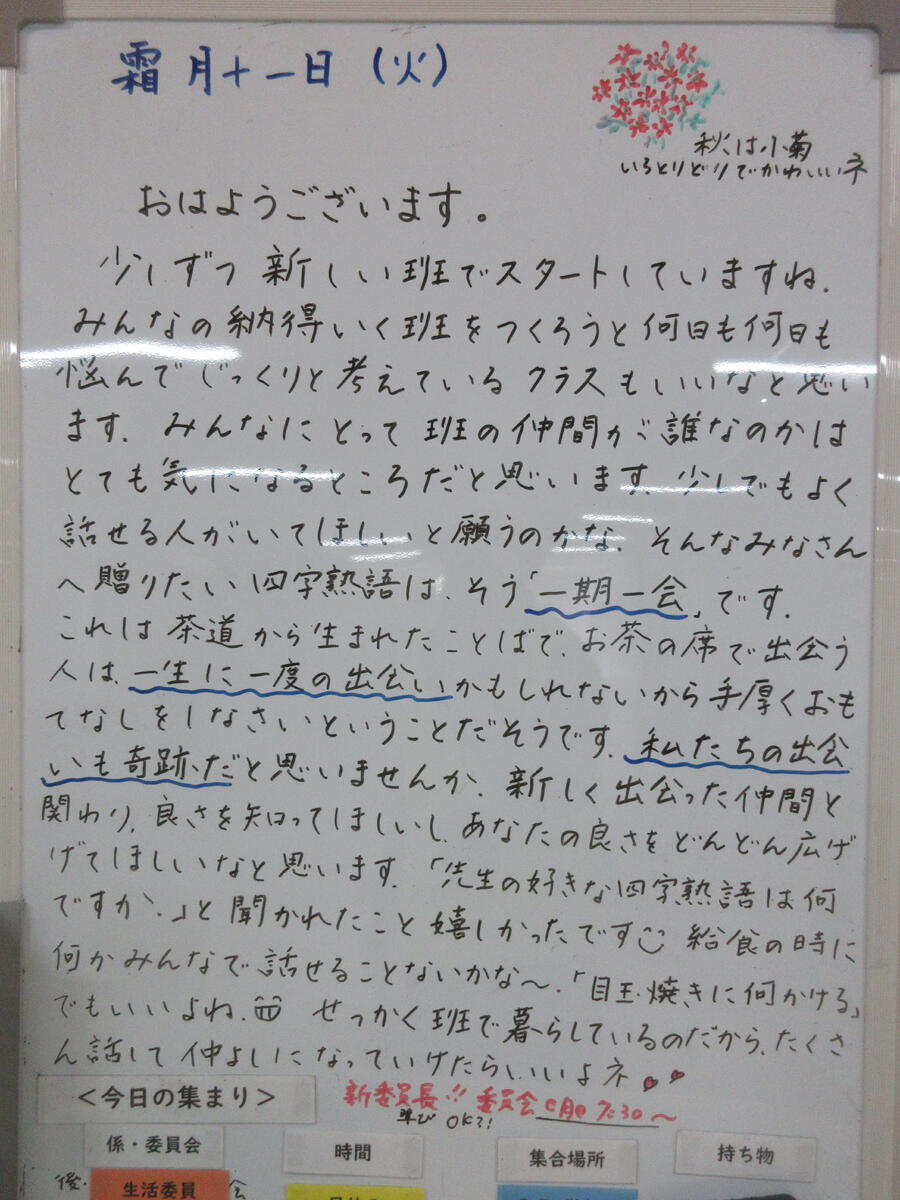 霜月十一日（火）
秋は小菊
いろとりどりでかわいいネ
おはようございます。
少しずつ新しい班でスタートしていますね.
みんなの納得いく班をつくろうと何日も何日も
悩んでじっくりと考えているクラスもいいなと思い
ます. みんなにとって班の仲間が誰なのかは
とても気になるところだと思います. 少しでもよく
話せる人がいてほしいと願うのかな. そんなみなさん
へ贈りたい四字熟語は、そう「一期一会」です.
これは茶道から生まれたことばで、お茶の席で出会う
人は、一生に一度の出会いかもしれないから手厚くおも
てなしをしなさいということだそうです. 私たちの出会
いも奇跡だと思いませんか. 新しく出会った仲間と
関わり、良さを知ってほしいし、あなたの良さをどんどん広げ
げてほしいなと思います. 「先生の好きな四字熟語は何
ですか.」と聞かれたこと嬉しかったです 給食の時に
何かみんなで話せることないかな〜.「目玉焼きに何かける」
でもいいよね. せっかく班で暮らしているのだから、たくさ
ん話して仲よしになっていけたらいいよネ
＜今日の集まり＞
新委員長!! 委員会 7:30〜
OK?!
係・委員会
時間
集合場所
持ち物
生活委員